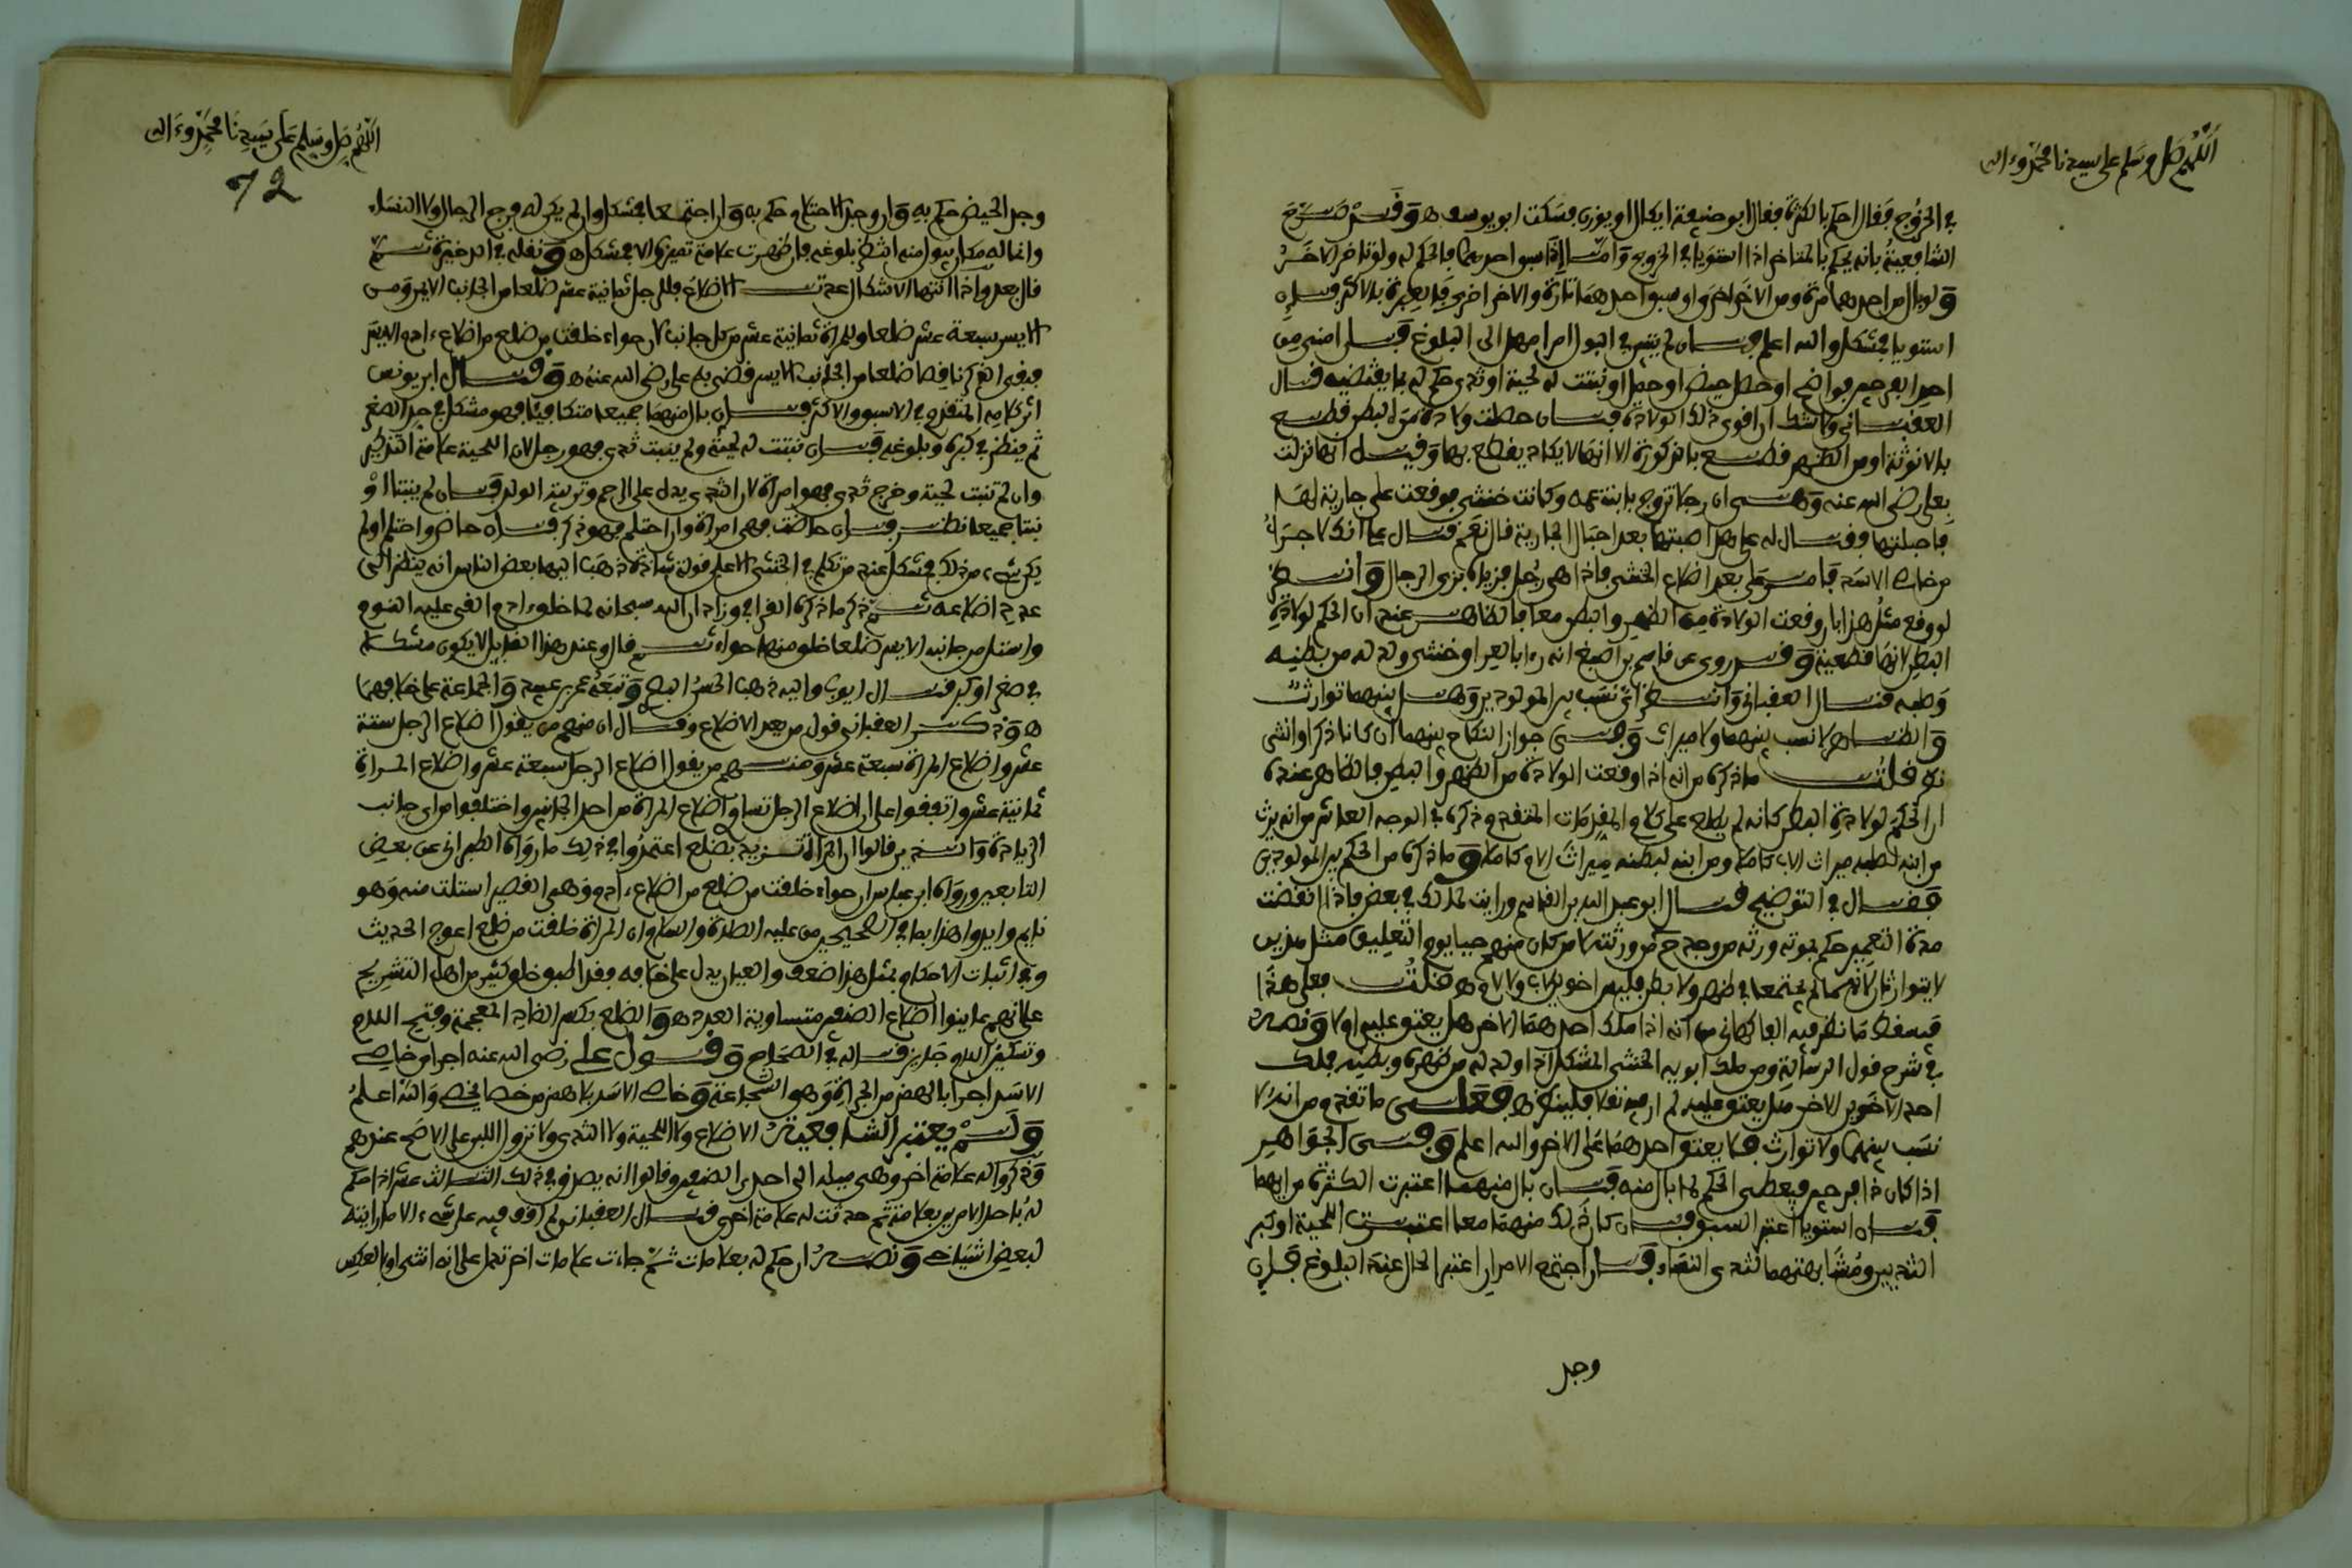 اللهم صل وسلم على سيدنا محمد وءاله
في الخروج فقال احكم بالكثرة فقال ابو حنيفة ايكال او يوزن فسكت ابو يوسف ه وقد صرح
الشافعية بانه يحكم بالمتاخر اذا استويا في الخروج واما اذا سبق احدهما فالحكم له ولو تاخر الاخر
ولو بال من احدهما مرة ومن الاخر اخرى او سبق احدهما تارة والاخر اخرى فالعبرة بالاكثر فان
استويا فمشكل والله اعلم فان لم يتبين في البول امرا مهل الى البلوغ فان امنى من
احد الفرجين فواضح او حصل حيض او حمل او نبتت له لحية او ثدي حكم له بما يقتضيه قال
العقباني ولا شك ان اقوى ذلك الولادة فان حصلت ولادة من البطن قطع
بالانوثة او من الظهر قطع بالذكورة الا انها لا يكاد يقطع بها وقيل انها نزلت
بعلي رضي الله عنه وهي ان رجلا تزوج بابنة عمه وكانت خنثى فوقعت على جارية لها
فاحبلتها فقال له علي هل اصبتها بعد احبال الجارية قال نعم فقال علي انك لاجرأ
من خاصي الاسد فامر علي بعد اضلاع الخنثى فاذا هي رجل فزياه بزي الرجال وانظر
لو وقع مثل هذا بان وقعت الولادة من الظهر والبطن معا فالظاهر عندي ان الحكم لولادة
البطن لانها قطعية وقد روي عن قاسم بن اصبغ انه رءا بالعراق خنثى ولد له من بطنه
وصلبه قال العقباني وانظر اي نسب بين المولودين وهل بينهما توارث
والظاهر لا نسب بينهما ولا ميراث وفي جواز النكاح بينهما ان كانا ذكرا وانثى
نظر قلت ما ذكره من انه اذا وقعت الولادة من الظهر والبطن فالظاهر عنده
ان الحكم لولادة البطن كانه لم يطلع على كلام المقدمات المتقدم ذكره في الوجه العاشر من انه يرث
من ابنه لصلبه ميراث الاب كاملا ومن ابنه لبطنه ميراث الام كاملا وما ذكره من الحكم بين المولودين
فقال في التوضيح قال ابو عبد الله بن القاسم ورايت لمالك في بعض فاذا انقضت
مدة التعمير حكم بموته ورثه من وجد ح من ورثته لا من كان منهم حيا يوم التعليق مثل هذين
لا يتوارثان لانهما لم يجتمعا في ظهر ولا بطن فليس اخوين لاب ولا لام ه قلت فعلى هذا
فيسقط ما نظر فيه الفاكهاني من انه اذا ملك احدهما الاخر هل يعتق عليه او لا ونصه
في شرح قول الرسالة ومن ملك ابويه الخنثى المشكل اذا ولد له من ظهره وبطنه فملك
احد الاخوين الاخر هل يعتق عليه لم ار فيه نقلا فلينظر ه فعلى ما تقدم من انه لا
نسب بينهما ولا توارث فلا يعتق احدهما على الاخر والله اعلم وفي الجواهر
اذا كان ذا فرجين فيعطى الحكم لما بال منه فان بال منهما اعتبرت الكثرة من ايهما
فان استويا اعتبر السبق فان كان ذلك منهما معا اعتبرت اللحية او كبر
الثديين ومشابهتهما لثدي النساء فان اجتمع الامران اعتبر الحال عند البلوغ فان
وجد
اللهم صل وسلم على سيدنا محمد وءاله
72
وجد الحيض حكم به وان وجد الاحتلام حكم به وان اجتمعا فمشكل وان لم يكن له فرج الرجال ولا النساء
وانما له مكان يبول منه انتظر بلوغه فان ظهرت علامة تميزه والا فمشكل ه ونقله في الذخيرة ثم
قال بعد واذا انتهى الاشكال عدت الاضلاع فللرجل ثمانية عشر ضلعا من الجانب الايمن ومن
الايسر سبعة عشر ضلعا وللمراة ثمانية عشر من كل جانب لان حواء خلقت من ضلع من اضلاع ءادم اليسر
فبقي الذكر ناقصا ضلعا من الجانب الايسر قضى به علي رضي الله عنه ه وقال ابن يونس
اثر كلامه المتقدم في الاسبق والاكثر فان بال منهما جميعا متكافيا فهو مشكل في حد الصغر
ثم ينظر في كبره وبلوغه فان نبتت له لحية ولم ينبت ثدي فهو رجل لان اللحية علامة التذكير
وان لم تنبت لحية وخرج ثدي فهو امراة لان الثدي يدل على الرحم وتربية الولد فان لم ينبتا او
نبتا جميعا نظر فان حاضت فهي امراة وان احتلم فهو ذكر فان حاض واحتلم او لم
يكن شيء من ذلك فمشكل عند من تكلم في الخنثى الا على قولة شاذة ذهب اليها بعض الناس انه ينظر الى
عدد اضلاعه ثم ذكر ما ذكره القرافي وزاد ان الله سبحانه لما خلق ءادم القى عليه النوم
واستل من جانبه الايسر ضلعا خلق منها حواء ثم قال وعند هذا القبيل لا يكون مشكلا
في صغر او كبر قال ايوب واليه ذهب الحسن البصري وتبعه عمرو بن عبيد والجماعة على خلافهما
ه وذكر العقباني قول من بعد الاضلاع وقال ان منهم من يقول اضلاع الرجل ستة
عشر واضلاع المراة سبعة عشر ومنهم من يقول اضلاع الرجل سبعة عشر واضلاع المراة
ثمانية عشر واتفقوا على ان اضلاع الرجل تساوي اضلاع المراة من احد الجانبين واختلفوا من اي جانب
الزيادة والذين قالوا ان المراة تزيد بضلع اعتمدوا في ذلك ما رواه الطبراني عن بعض
التابعين ورواه ابن عباس ان حواء خلقت من ضلع من اضلاع ءادم وهي القصير استلت منه وهو
نايم وايدوا هذا بما في الصحيحين من عليه الصلاة والسلام ان المراة خلقت من ضلع اعوج الحديث
وفي اثبات الاحكام بمثل هذا ضعف والعيان يدل على خلافه وقد اطبق خلق كثير من اهل التشريح
على انهم عاينوا اضلاع الصنفين متساوية العدد ه والضلع بكسر الضاد المعجمة وفتح اللام
وتسكين اللام جايز قاله في الصحاح وقول علي رضي الله عنه اجرا من خاصي
الاسد اجرا بالهمز من الجراة وهو الشجاعة وخاصي الاسد بلا همز من خصا يخصي والله اعلم
ولم يعتبر الشافعية الاضلاع ولا اللحية ولا الثدي ولا نزول اللبن على الاصح عندهم
وذكروا له علامة اخرى وهي ميله الى احد الصنفين وقالوا انه يصدق في ذلك الثالث عشر اذا حكم
له باحد الامرين بعلامة ثم حدثت له علامة اخرى قال العقباني لم اقف فيه على شيء الا ما رايته
لبعض اشياخي ونصه ان حكم له بعلامات ثم جاءت علامات اخر تدل على انه انثى او بالعكس